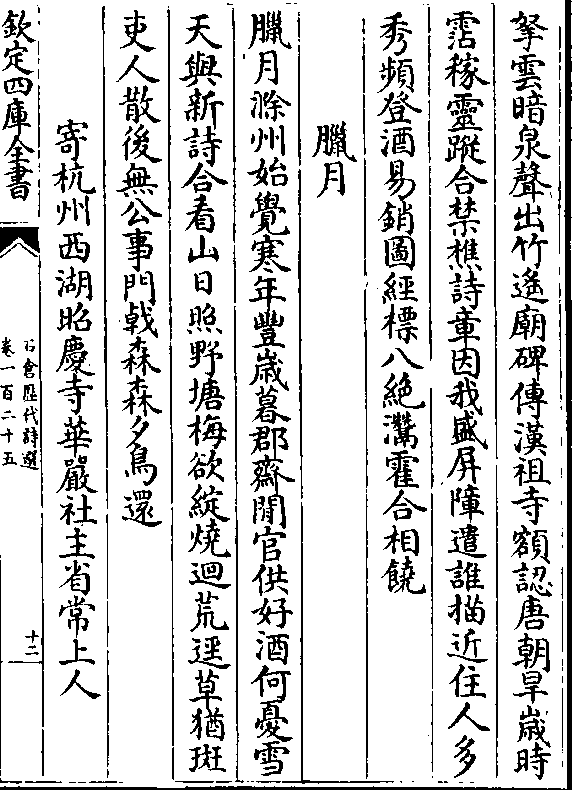 拏雲暗泉聲出竹遙廟碑傳漢祖寺額認唐朝旱歳時
霑稼靈蹤合禁樵詩章因我盛屏障遣誰描近住人多
秀頻登酒易銷圖經標八絶灊霍合相饒
臘月
臘月滁州始覺寒年豐歳暮郡齋閒官供好酒何憂雪
天與新詩合看山日照野塘梅欲綻燒迴荒逕草猶斑
吏人散後無公事門㦸森森夕鳥還
寄杭州西湖昭慶寺華嚴社主省常上人
欽定四庫全書
石倉歴代詩選
卷一百二十五
十二